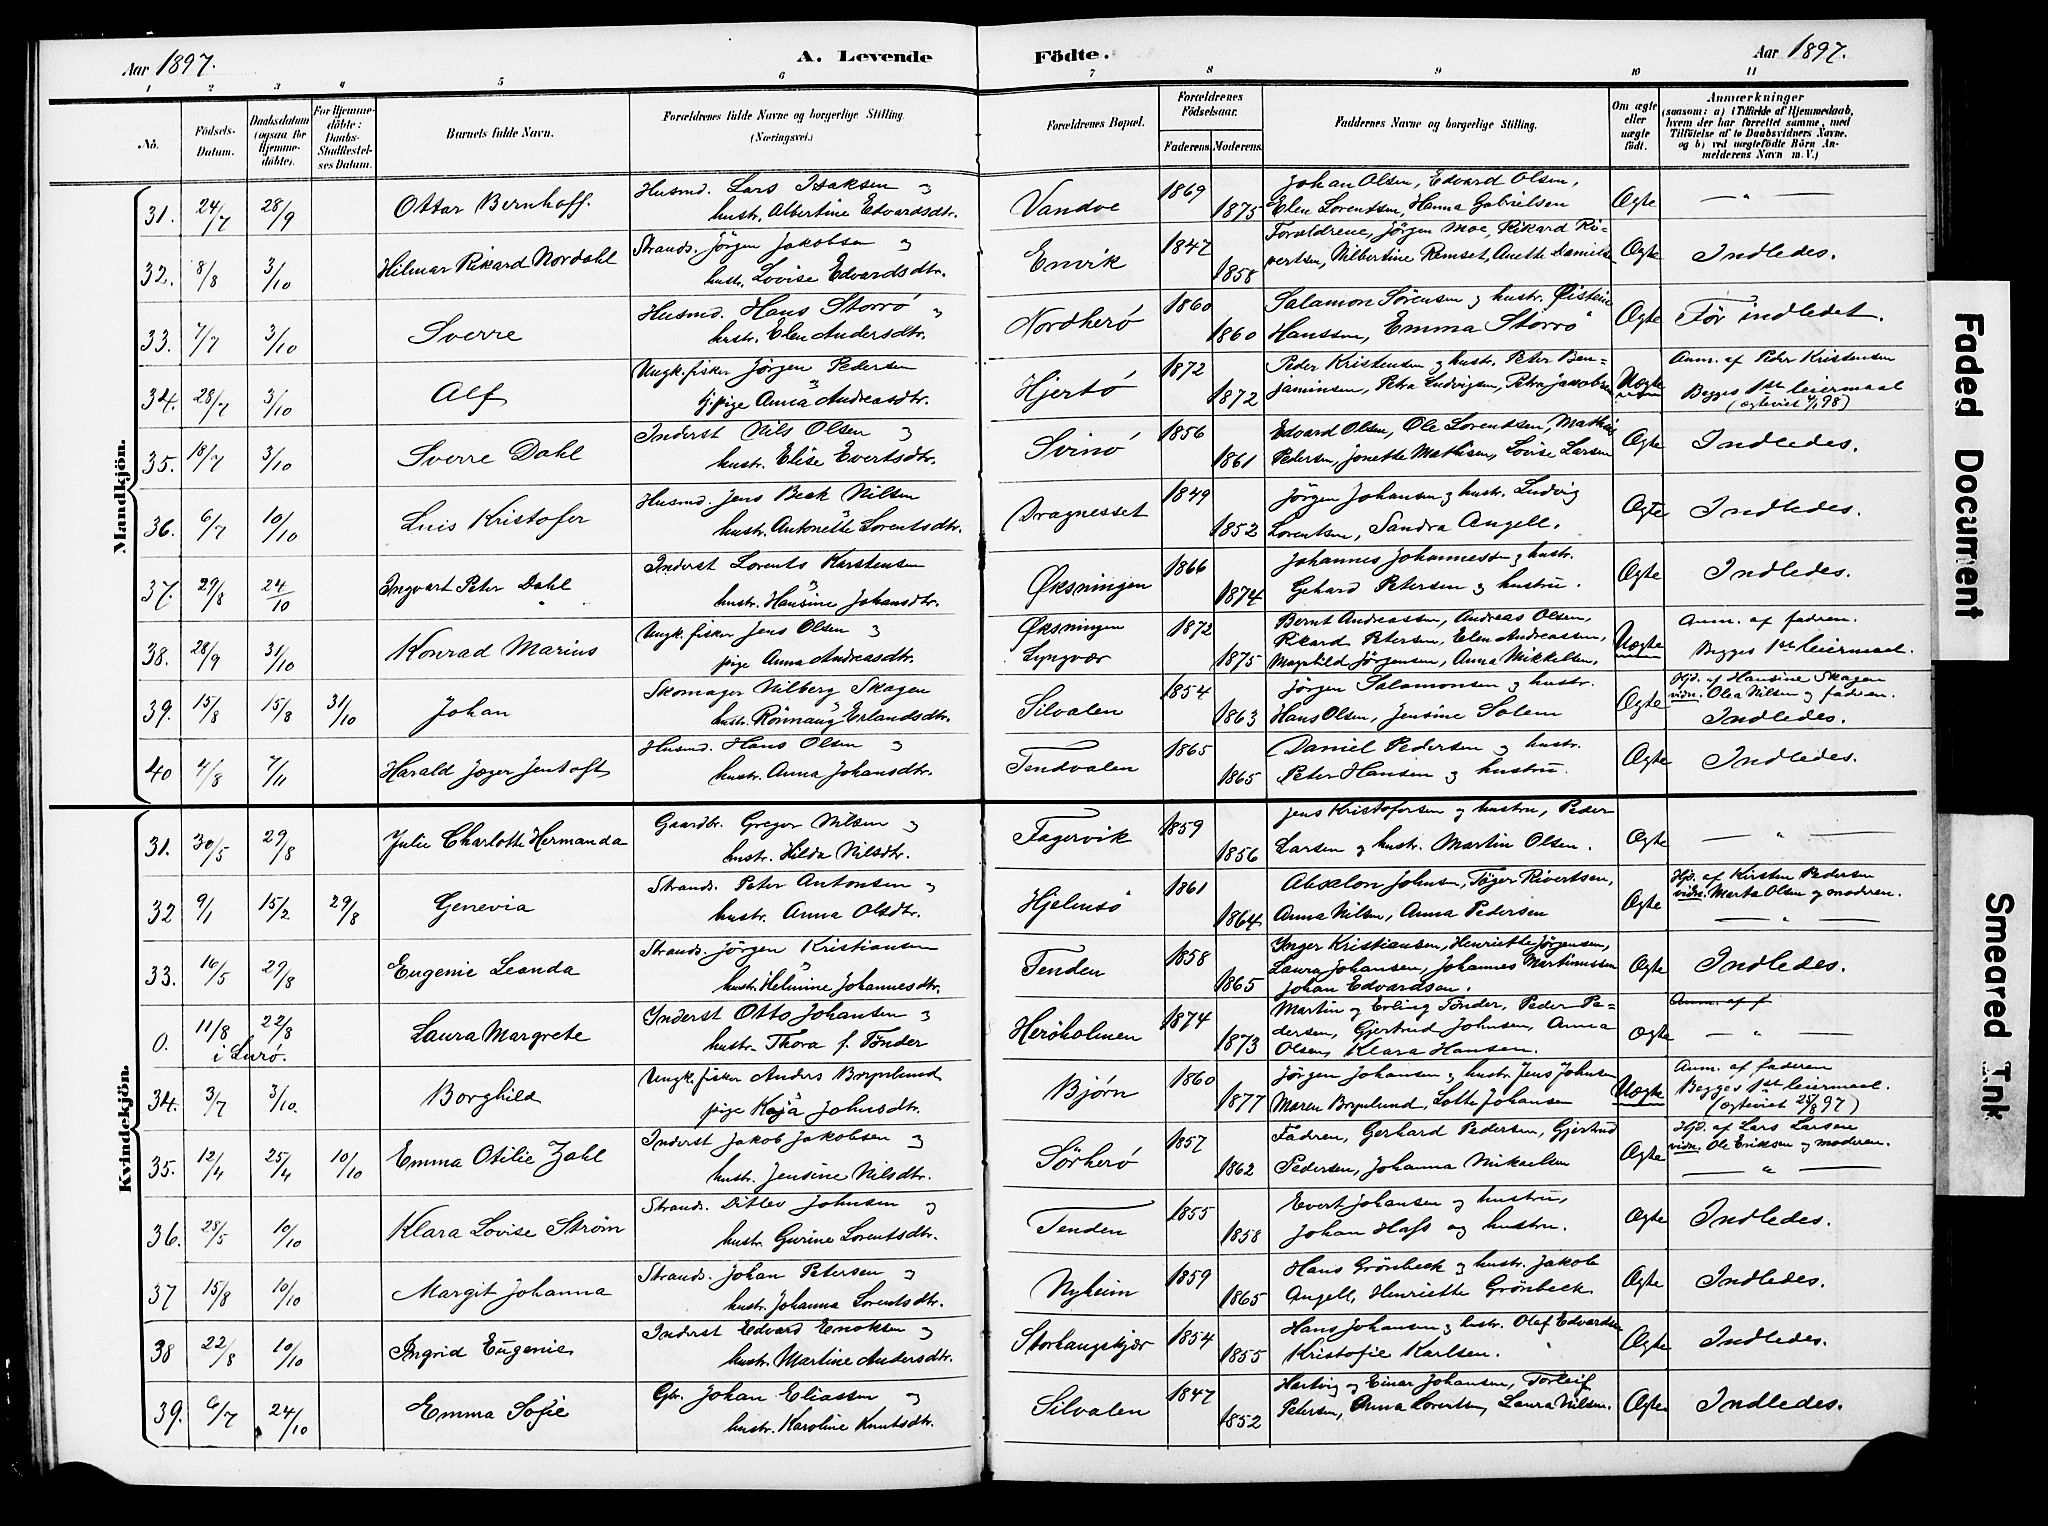 Aar 1897.
A. Levende Födte.
Aar 1897.
1 2 3 4 5 6 7 8 9 10 11
No.
Födsels-Datum.
Daabsdatum (ogsaa for Hjemmedöbte).
For Hjemmedöbte: Daabs-Stadfæstelses Datum.
Barnets fulde Navn.
Forældrenes fulde Navne og borgerlige Stilling. (Næringsvei.)
Forældrenes Bopæl.
Forældrenes Födselsaar.
Faderens Moderens
Faddernes Navne og borgerlige Stilling.
Om ægte eller uægte födt.
Anmærkninger
(saasom: a) i Tilfælde af Hjemmedaab, hvem der har forrettet samme, med Tilföielse af to Daabsvidners Navne. og b) ved uægtefödte Börn Anmelderens Navn m. V.)
Mandkjön.
31. 24/7 28/9 Ottar Bernhoff. Husmd. Lars Isaksen og hustr. Albertine Edvardsdtr. Vandve 1869 1875 Johan Olsen, Edvard Olsen, Elen Lorentsen, Hanna Gabrielsen Ægte — " —
32. 8/8 3/10 Hilmar Rikard Nordahl Strands. Jörgen Jakobsen og hustr. Lovise Edvardsdtr. Envik 1847 1858 Forældrene, Jörgen Moe, Rikard Rivertsen, Vilbertine Remset, Anette Danielsen Ægte Indledes.
33. 7/7 3/10 Sverre Husmd. Hans Storrö og hustr. Elen Andersdtr. Nordherö 1860 1860 Salamon Sörensen og hustr. Øistein Hanssen, Emma Storrö Ægte Før indledet.
34. 28/7 3/10 Alf Ungk. fisker Jörgen Pedersen og pige Anna Andreasdtr. Hjertö 1872 1872 Peder Kristensen og hustr. Peter Benjaminsen, Petra Ludvigsen, Petra Jakobsen Uægte Anm. af Peter Kristensen Begges 1ste leiermaal (ægteviet 4/1 98)
35. 18/7 3/10 Sverre Dahl Inderst Nils Olsen og hustr. Elise Evertsdtr. Svinö 1856 1861 Edvard Olsen, Ole Lorentsen, Mathis Pedersen, Jonette Mathisen, Lovise Larsen Ægte Indledes.
36. 6/7 10/10 Luis Kristofer Husmd. Jens Beck Nilsen hustr. Antonette Lorentsdtr. Dragnesset 1849 1852 Jörgen Johansen og hustr. Ludvig Lorentsen, Sandra Angell. Ægte Indledes.
37. 29/8 24/10 Ingvart Peter Dahl Inderst Lorents Karstensen hustr. Hansine Johansdtr. Øksningen 1866 1874 Johannes Johannessen og hustr. Gehard Petersen og hustru. Ægte Indledes.
38. 28/9 31/10 Konrad Marius Ungk. fisker Jens Olsen og pige Anna Andreasdtr. Øksningen Lyngvær 1872 1875 Bernt Andreassen, Andreas Olsen, Rikard Petersen, Elen Andreassen, Magthild Jörgensen, Anna Mikkelsen. Uægte Anm. af fadren. Begges 1ste leiermaal.
39. 15/8 15/8 31/10 Johan Skomager Vilberg Skagen hustr. Rönnaug Erlandsdtr. Silvalen 1854 1863 Jörgen Salamonsen og hustr. Hans Olsen, Jensine Solem Ægte Hjd. af Hansine Skagen vidn. Olea Nilsen og fadren. Indledes.
40 4/8 7/11 Harald Jæger Jentoft Husmd. Hans Olsen og hustr. Anna Johansdtr. Tendvalen 1865 1865 Daniel Pedersen og hustr. Peter Hansen og hustru. Ægte Indledes.
Kvindekjön.
31. 30/5 29/8 Julie Charlotte Hermanda Gaardbr. Gregor Nilsen og hustr. Hilda Nilsdtr. Fagervik 1859 1856 Jens Kristofersen og hustru, Peder Larsen og hustr. Martin Olsen. Ægte — " —
32 9/1 15/2 29/8 Genevia Strands. Peter Antonsen og hustr. Anna Olsdtr. Hjelmsö 1861 1864. Absalon Johnsen, Töger Rivertsen, Anna Nilsen, Anna Pedersen Ægte Hjd. af Kirsten Pedersen vidn. Marta Olsen og modren. — " —
33. 16/5 29/8 Eugenie Leanda Strands. Jörgen Kristiansen hustr. Helmine Johannesdtr. Tenden 1858 1865 Inger Kristiansen, Henriette Jörgensen, Laura Johansen, Johannes Martinussen Johan Edvardsen. Ægte Indledes.
0. 11/8 22/8 i Lurö. Laura Margrete Inderst Otto Johansen og hustr. Thora f. Tönder Heröholmen 1874 1873 Martin og Erling Tönder, Peder Pedersen, Gjertrud Johnsen, Anna Olsen, Klara Hansen. Ægte Anm. af f — " —
34. 3/7 3/10. Borghild Ungk. fisker Anders Brynlund pige Kaja Johnsdtr. Bjørn 1860 1877 Jörgen Johansen og hustr. Jens Johnsen Maren Brynlund, Lotte Johansen Uægte Anm. af faderen Begges 1ste leiermaal. (ægteviet 25/8 97)
35. 12/4 25/4 10/10 Emma Otilie Zahl Inderst Jakob Jakobsen og hustr. Jensine Nilsdtr. Sörherö 1857 1862 Fadren, Gerhard Pedersen, Gjertrud Pedersen, Johanna Mikaelsen Ægte Hjd. af Lars Larsen vidn. Ole Eriksen og modren. — " —
36. 28/5 10/10 Klara Lovise Strøm Strands. Ditlev Johnsen og hustr. Gurine Lorentsdtr. Tenden 1855 1858 Evert Johansen og hustru, Johan Hafs og hustru. Ægte Indledes.
37 15/8 10/10 Margit Johanna Strands. Johan Petersen og hustr. Johanna Lorentsdtr. Nyheim 1859 1865 Hans Grönbeck og hustr. Jakob Angell, Henriette Grönbeck. Ægte Indledes.
38 22/8 10/10 Ingrid Eugenie Inderst Edvard Enoksen og hustr. Martine Andersdtr. Storhaugskjær 1854 1855 Hans Johansen og hustr. Olaf Edvardsen Kristofie Karlsen. Ægte Indledes.
39. 6/7 24/10 Emma Sofie Gbr. Johan Eliassen og hustr. Karoline Knutsdtr. Silvalen 1847 1852 Hartvig og Einar Johansen, Torleif Petersen, Anna Lorentsen, Laura Nilsen. Ægte Indledes.
Faded Document
Smeared Ink